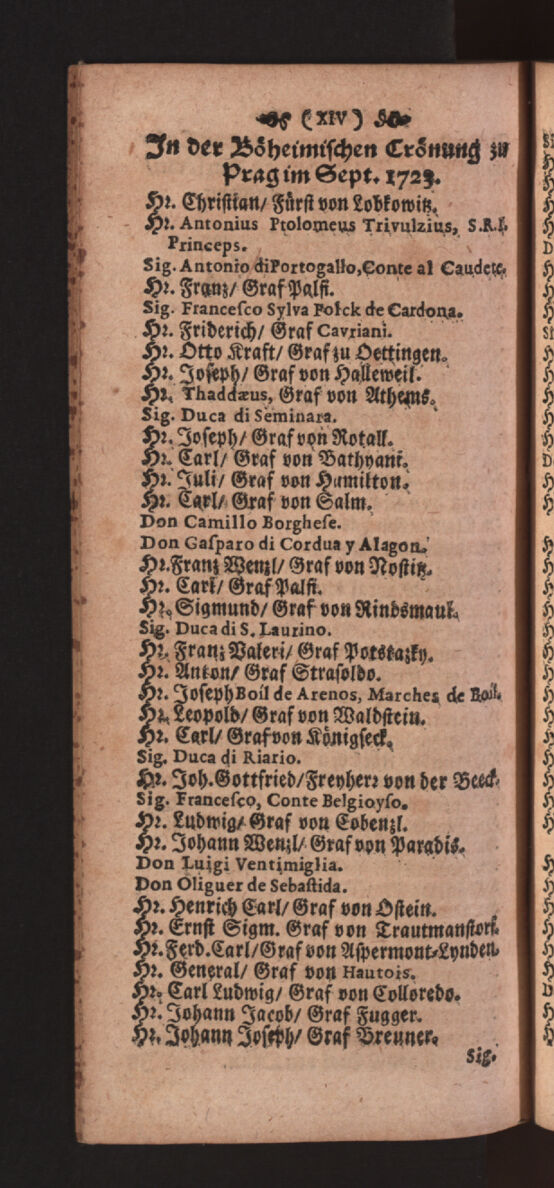 (XIV)
In der Böheimischen Crönung zu
Prag im Sept. 1723.
Hr. Christian/ Fürst von Lobkowitz.
Hr. Antonius Ptolomeus Trivulzius, S.R.I.
Princeps.
Sig. Antonio di Portogallo, Conte al Caudete.
Hr. Franz/ Graf Palfi.
Sig. Francesco Sylva Folck de Cardona.
Hr. Friderich/ Graf Cavriani.
Hr. Otto Kraft/ Graf zu Oettingen.
Hr. Joseph/ Graf von Halleweil.
Hr. Thaddæus, Graf von Athems.
Sig. Duca di Seminara.
Hr. Joseph/ Graf von Rotall.
Hr. Carl/ Graf von Bathyani.
Hr. Juli/ Graf von Hamilton.
Hr. Carl/ Graf von Salm.
Don Camillo Borghese.
Don Gasparo di Cordua y Alagon.
Hr. Franz Wenzl/ Graf von Nostitz.
Hr. Carl/ Graf Palfi.
Hr. Sigmund/ Graf von Rindsmaul.
Sig. Duca di S. Laurino.
Hr. Franz Valeri/ Graf Potstazky.
Hr. Anton/ Graf Strasoldo.
Hr. Joseph Boil de Arenos, Marches de Boil.
Hr. Leopold/ Graf von Waldstein.
Hr. Carl/ Graf von Königseck.
Sig. Duca di Riario.
Hr. Joh. Gottfried/ Freyherr von der Beeck.
Sig. Francesco, Conte Belgioyso.
Hr. Ludwig/ Graf von Cobenzl.
Hr. Johann Wenzl/ Graf von Paradis.
Don Luigi Ventimiglia.
Don Oliguer de Sebastida.
Hr. Henrich Carl/ Graf von Ostein.
Hr. Ernst Sigm. Graf von Trautmanstorf.
Hr. Ferd. Carl/ Graf von Aspermont-Lynden.
Hr. General/ Graf von Hautois.
Hr. Carl Ludwig/ Graf von Colloredo.
Hr. Johann Jacob/ Graf Fugger.
Hr. Johann Joseph/ Graf Breuner.
Sig.